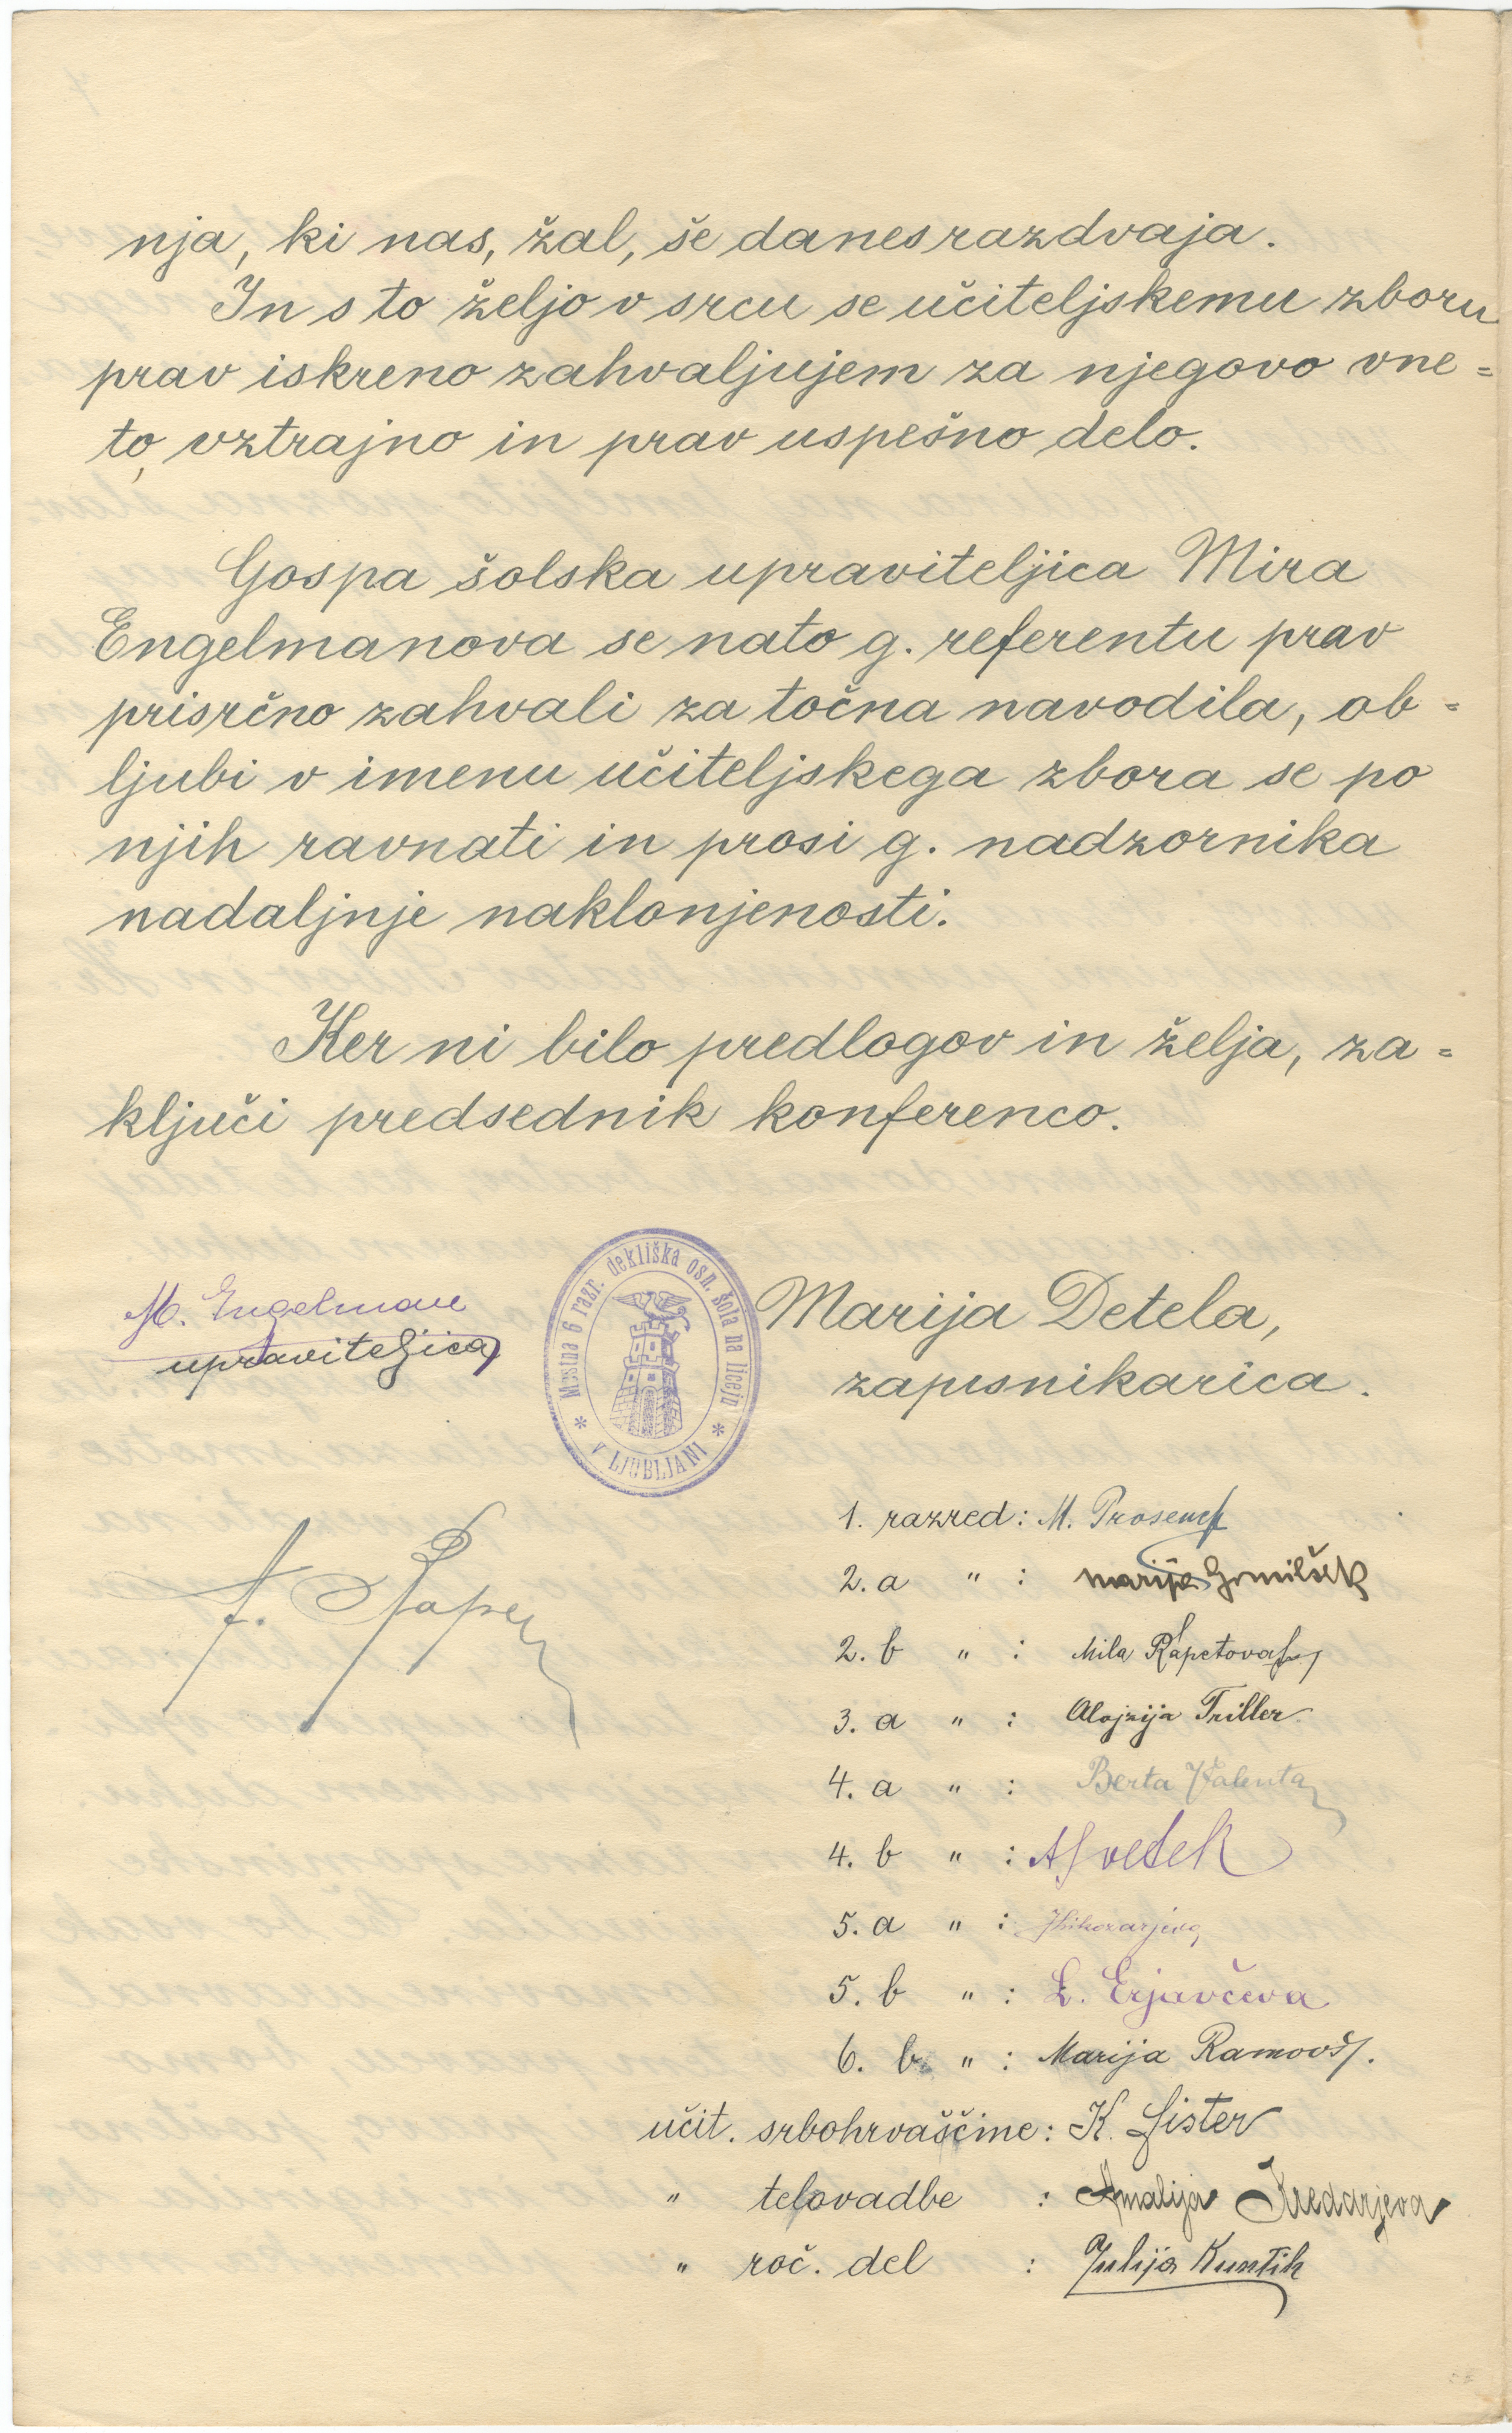 nja, ki nas, žal, še danes razdvaja.
In s to željo v srcu se učiteljskemu zboru
prav iskreno zahvaljujem za njegovo vne=
to, vztrajno in prav uspešno delo.
Gospa šolska upraviteljica Mira
Engelmanova se nato g. referentu prav
prisrčno zahvali za točna navodila, ob=
ljubi v imenu učiteljskega zbora se po
njih ravnati in prosi g. nadzornika
nadaljnje naklonjenosti.
Ker ni bilo predlogov in želja, za=
ključi predsednik konferenco.
M. Engelman
upraviteljica
Mestna 6 razr. dekliška osn. šola na liceju
* V LJUBLJANI *
Marija Detela,
zapisnikarica.
1. razred: M. Prosenc
2. a " : Marija Grmilšek
2. b " : Mila Kapetova
3. a " : Alojzija Triller
4. a " : Berta Valenta
4. b " : A. Svetek
5. a " :
5. b " : L. Erjavčeva
6. b " : Marija Ramovš.
učit. srbohrvaščine: K. Šister
" telovadbe : Amalija
" roč. del : Julija Kuntih